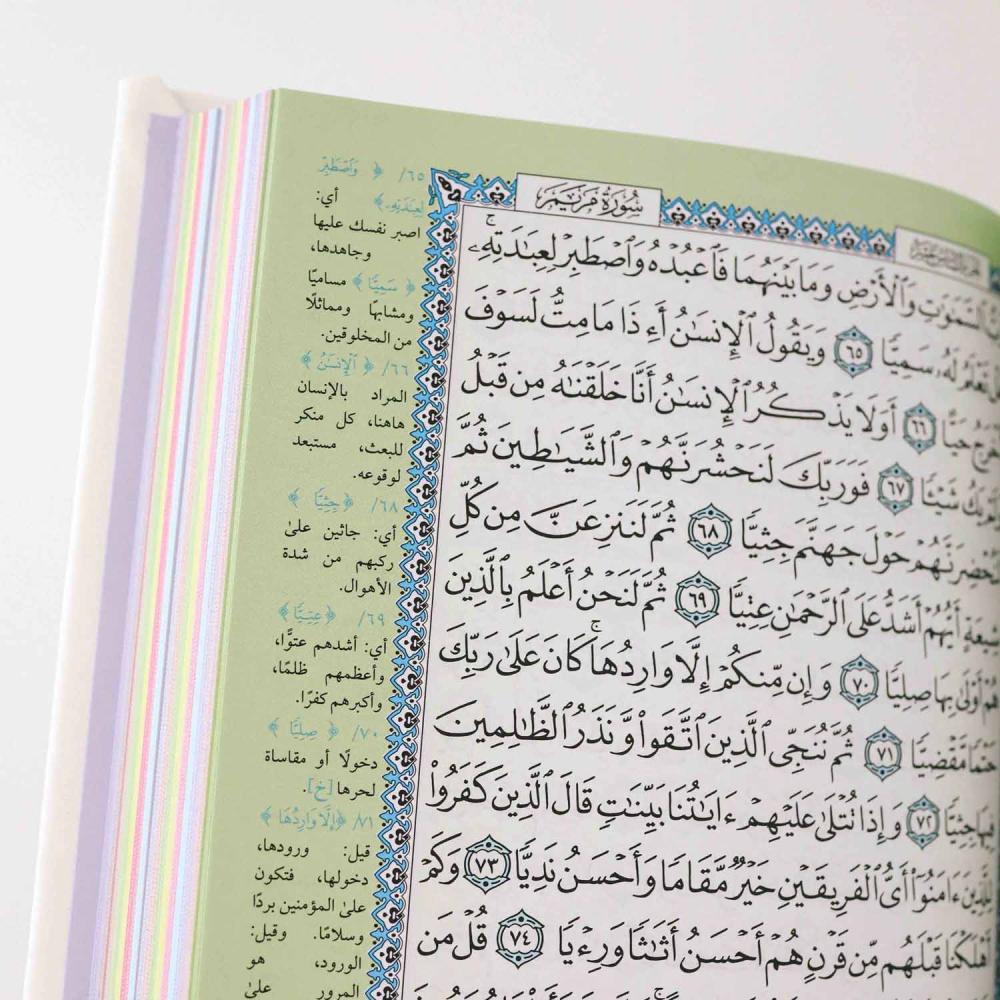 سُورَةُ مَرْيَمَ
ٱلسَّمَٰوَٰتِ وَٱلْأَرْضِ وَمَا بَيْنَهُمَا فَٱعْبُدْهُ وَٱصْطَبِرْ لِعِبَٰدَتِهِۦۚ
تَعْلَمُ لَهُۥ سَمِيًّا ٦٥ وَيَقُولُ ٱلْإِنسَٰنُ أَءِذَا مَا مِتُّ لَسَوْفَ
أُخْرَجُ حَيًّا ٦٦ أَوَلَا يَذْكُرُ ٱلْإِنسَٰنُ أَنَّا خَلَقْنَٰهُ مِن قَبْلُ
يَكُ شَيْـًٔا ٦٧ فَوَرَبِّكَ لَنَحْشُرَنَّهُمْ وَٱلشَّيَٰطِينَ ثُمَّ
لَنُحْضِرَنَّهُمْ حَوْلَ جَهَنَّمَ جِثِيًّا ٦٨ ثُمَّ لَنَنزِعَنَّ مِن كُلِّ
شِيعَةٍ أَيُّهُمْ أَشَدُّ عَلَى ٱلرَّحْمَٰنِ عِتِيًّا ٦٩ ثُمَّ لَنَحْنُ أَعْلَمُ بِٱلَّذِينَ
هُمْ أَوْلَىٰ بِهَا صِلِيًّا ٧٠ وَإِن مِّنكُمْ إِلَّا وَارِدُهَاۚ كَانَ عَلَىٰ رَبِّكَ
حَتْمًا مَّقْضِيًّا ٧١ ثُمَّ نُنَجِّي ٱلَّذِينَ ٱتَّقَوا۟ وَّنَذَرُ ٱلظَّٰلِمِينَ
فِيهَا جِثِيًّا ٧٢ وَإِذَا تُتْلَىٰ عَلَيْهِمْ ءَايَٰتُنَا بَيِّنَٰتٍ قَالَ ٱلَّذِينَ كَفَرُوا۟
لِلَّذِينَ ءَامَنُوٓا۟ أَىُّ ٱلْفَرِيقَيْنِ خَيْرٌ مَّقَامًا وَأَحْسَنُ نَدِيًّا ٧٣ وَكَمْ
أَهْلَكْنَا قَبْلَهُم مِّن قَرْنٍ هُمْ أَحْسَنُ أَثَٰثًا وَرِءْيًا ٧٤ قُلْ مَن
٦٥/ ﴿وَٱصْطَبِرْ
لِعِبَٰدَتِهِۦ﴾ أي:
اصبر نفسك عليها
وجاهدها،
﴿سَمِيًّا﴾ مساميًا
ومشابهًا ومماثلًا
من المخلوقين.
٦٦/ ﴿ٱلْإِنسَٰنُ﴾
المراد بالإنسان
هاهنا، كل منكر
للبعث، مستبعد
لوقوعه.
٦٨/ ﴿جِثِيًّا﴾
أي: جاثين على
ركبهم من شدة
الأهوال.
٦٩/ ﴿عِتِيًّا﴾
أي: أشدهم عتوًّا،
وأعظمهم ظلمًا،
وأكبرهم كفرًا.
٧٠/ ﴿صِلِيًّا﴾
دخولًا أو مقاساة
لحرها [خ].
٧١/ ﴿إِلَّا وَارِدُهَا﴾
قيل: ورودها،
دخولها، فتكون
على المؤمنين بردًا
وسلامًا. وقيل:
الورود، هو
المرور على